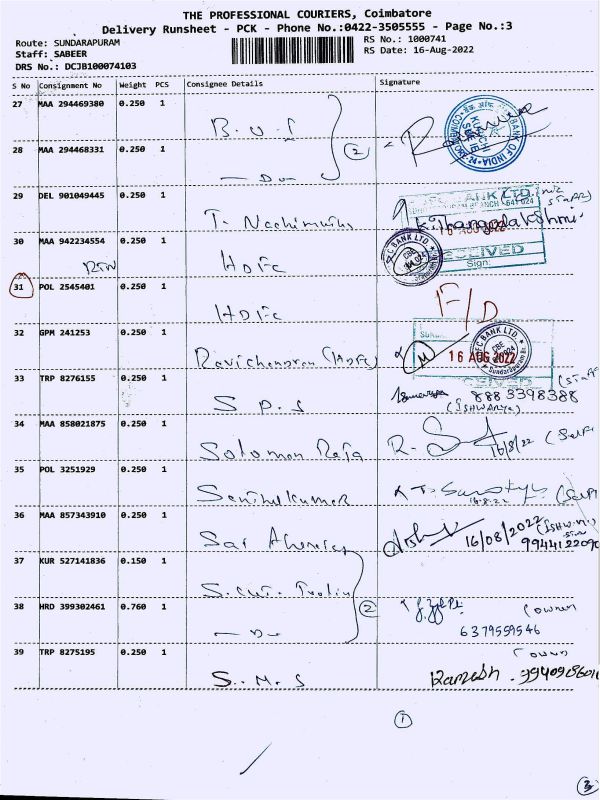 THE PROFESSIONAL COURIERS, Coimbatore
Delivery Runsheet - PCK - Phone No.:0422-3505555 - Page No.:3
Route: SUNDARAPURAM
RS No.: 1000741
Staff: SABEER
RS Date: 16-Aug-2022
DRS No.: DCJB100074103
S No Consignment No Weight PCS Consignee Details Signature
27 MAA 294469380 0.250 1 B.O.I
28 MAA 294468331 0.250 1 — Do — 2
29 DEL 901049445 0.250 1 T.
30 MAA 942234554 0.250 1 HDFC
31 POL 2545401 0.250 1 HDFC F/D
32 GPM 241253 0.250 1 Ravichandran (HDFC) M 16 AUG 2022
33 TRP 8276155 0.250 1 S P. S 8883398388
(ISHWARYA)
34 MAA 858021875 0.250 1 Solomon Raja 16/8/22 (Self)
35 POL 3251929 0.250 1 Senthilkumar 16.8.22 (Self)
36 MAA 857343910 0.250 1 Sai 16/08/2022
9944122090
37 KUR 527141836 0.150 1
38 HRD 399302461 0.760 1 — Do 2 (owner
6379559546
39 TRP 8275195 0.250 1 S. M. S (owner
Ramesh
1
3